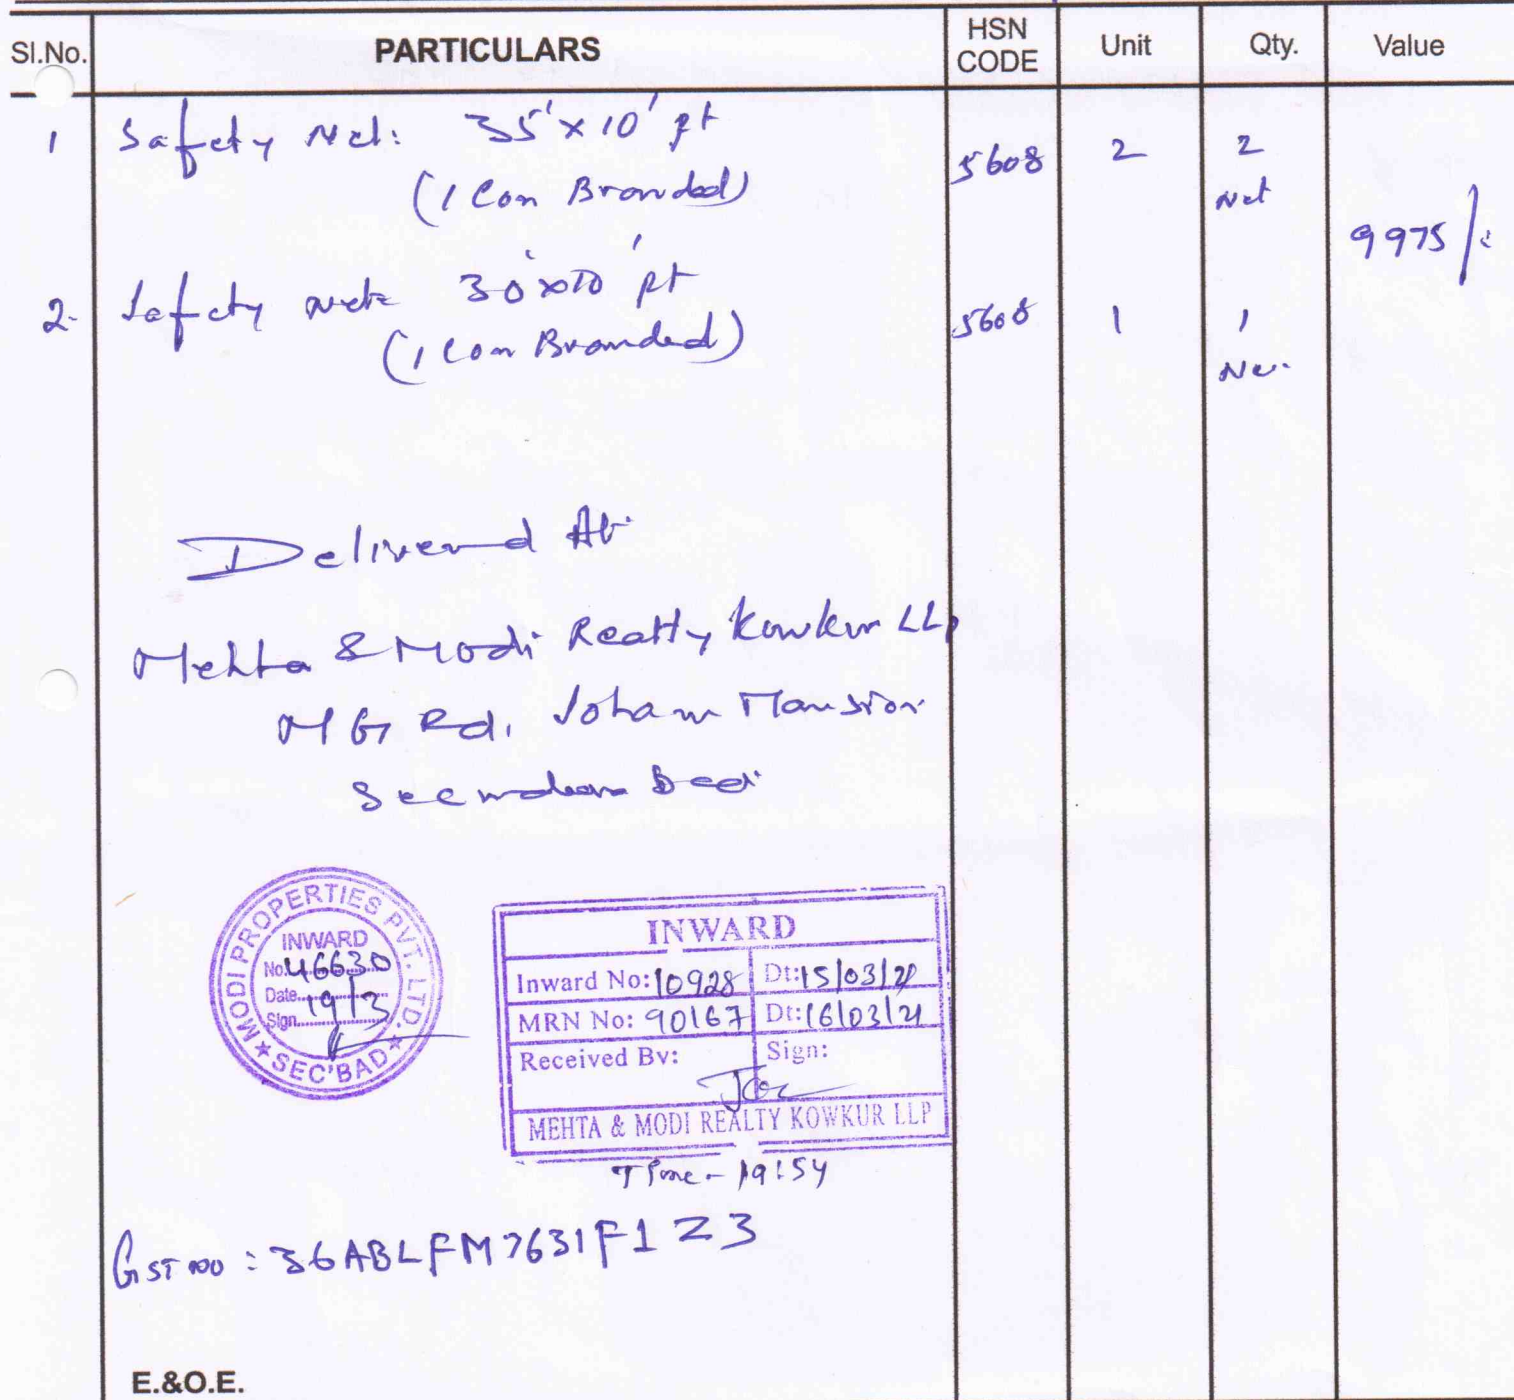 Sl.No. PARTICULARS HSN CODE Unit Qty. Value
1 Safety Net: 35'x10' ft 5608 2 2 Net
(1 Con Branded)
9975/-
2- Safety Net 30'x10' ft 5608 1 1
(1 Con Branded)
Delivered At
Mehta & Modi Realty Kowkur LLP
M G Rd, Soham Mansion
MODI PROPERTIES PVT. LTD.
INWARD
No. 46630
Date 19/3
Sign
★ SEC'BAD ★
INWARD
Inward No: 10928 Dt: 15/03/21
MRN No: 90167 Dt: 16/03/21
Received By: Sign:
MEHTA & MODI REALTY KOWKUR LLP
Time - 19:54
GST NO : 36ABLFM7631F1Z3
E.&O.E.